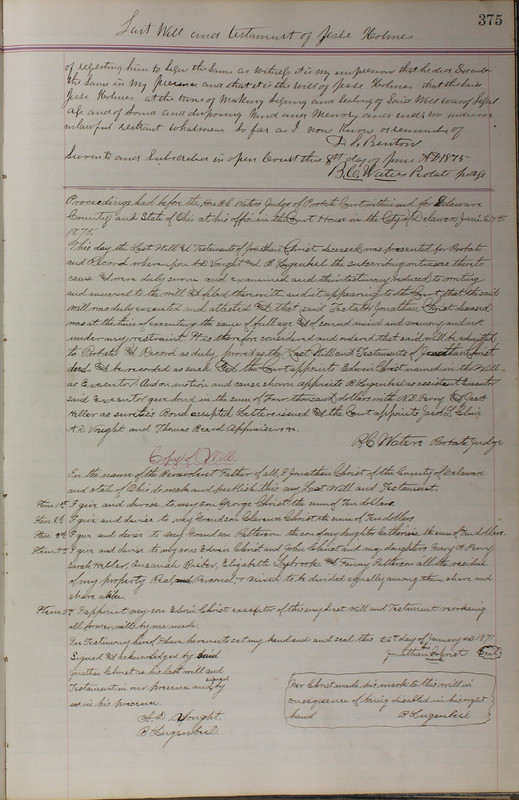 375
Last Will and Testament of Jesse Holmes
of requesting him to Sign the Same as witness it is my impression that he did Execute
the Same in my presence and that it is the Will of Jesse Holmes that the said
Jesse Holmes at the time of Making Signing and Sealing of Said Will was of legal
age and of Sound and disposing Mind and Memory and under no undue or
unlawful restraint whatsoever So far as I now know or remember
D. S. Benton
Sworn to and Subscribed in open Court this 8th day of June AD 1875
B. C. Waters Probate Judge
Proceedings had before the Hon B.C. Waters Judge of Probate Court within and for Delaware
County and State of Ohio at his office in the Court House in the City of Delaware June 27th
1875
This day the Last Will & Testament of Jonathan Christ deceased was presented for Probate
and Record whereupon A.D. Vought and B Lugenbeel the subscribing witnesses thereto
came & were duly sworn and examined and their testimony reduced to writing
and annexed to the will & filed therewith and it appearing to the Court that the said
will was duly executed and attested & that said Testator Jonathan Christ deceased
was at the time of executing the same of full age & of sound mind and memory and not
under any restraint. It is therefore considered and ordered that said will be admitted
to Probate & Record as duly proved as the Last Will and Testament of Jonathan Christ
decd & be recorded as such. And the Court appoints Edwin Christ named in the Will
as Executor. And on motion and cause shown appoints B Lugenbeel as assistant Executor
said Executor gave bond in the sum of Four thousand dollars with A.D. Perry &
Heller as sureties Bond accepted Letters issued & the Court appoints
A.D. Vought and Thomas Beard Appraisers
B. C. Waters Probate Judge
Copy of Will.
In the name of the Benevolent Father of all, I Jonathan Christ of the County of Delaware
and State of Ohio do make and publish this my Last Will and Testament.
Item 1st I give and devise to my son George Christ the sum of Ten dollars
Item I give and devise to my Grandson Clarence Christ the sum of Ten dollars
Item 3d I give and devise to my Grandson Patterson the son of my daughter Catherine the sum of Ten dollars
Item I give and devise to my sons Edwin Christ and John Christ and my daughters Mary A Perry
Sarah Heller, Susannah Barber, Elizabeth Lybrooke & Fanny Patterson all the residue
of my property Real and Personal & mixed to be divided equally among them share and
share alike.
Item 5th I appoint my son Edwin Christ executor of this my Last Will and Testament revoking
all former wills by me made.
In Testimony hereof I have hereunto set my hand and seal this 26th day of January AD 187
Signed & acknowledged by said
Jonathan Christ Seal
Jonathan Christ as his last will and
Testament in our presence and signed by
us in his presence
A.D. Vought.
B Lugenbeel.
Mr Christ made his mark to this will in
consequence of being disabled in his right
hand B Lugenbeel